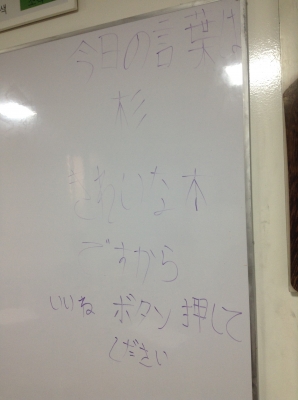 今日の言葉は
杉
きれいな木
ですから
いいね ボタン 押して
ください